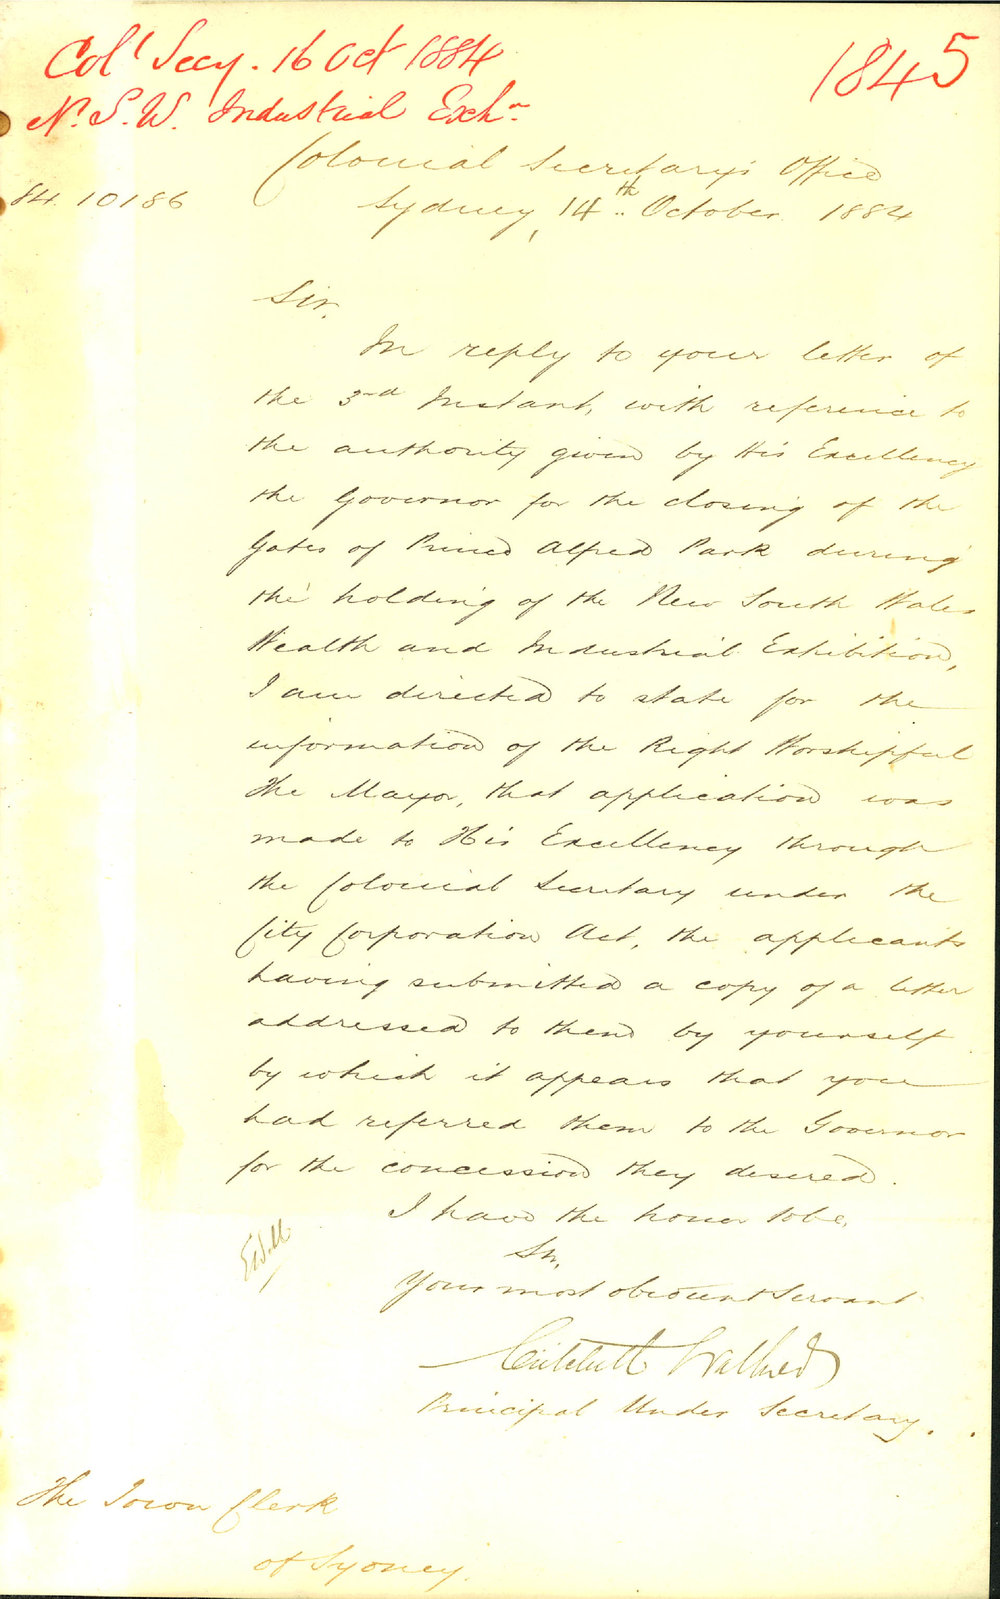 Col<sup>l</sup> Secy. 16 Oct 1884
1845
N.S.W. Industrial Exh<sup>n</sup>
Colonial Secretary's Office
84. 10186
Sydney, 14<sup>th</sup> October 1884
Sir,
In reply to your letter of
the 3<sup>rd</sup> Instant, with reference to
the authority given by His Excellency
the Governor for the closing of the
Gates of Prince Alfred Park during
the holding of the New South Wales
Health and Industrial Exhibition,
I am directed to state for the
information of the Right Worshipful
The Mayor, that application was
made to His Excellency through
the Colonial Secretary under the
City Corporation Act, the applicants
having submitted a copy of a letter
addressed to them by yourself
by which it appears that you
had referred them to the Governor
for the concession they desired.
I have the honor to be,
Sir,
Your most obedient Servant
Critchett Walker
Principal Under Secretary.
The Town Clerk
of Sydney.